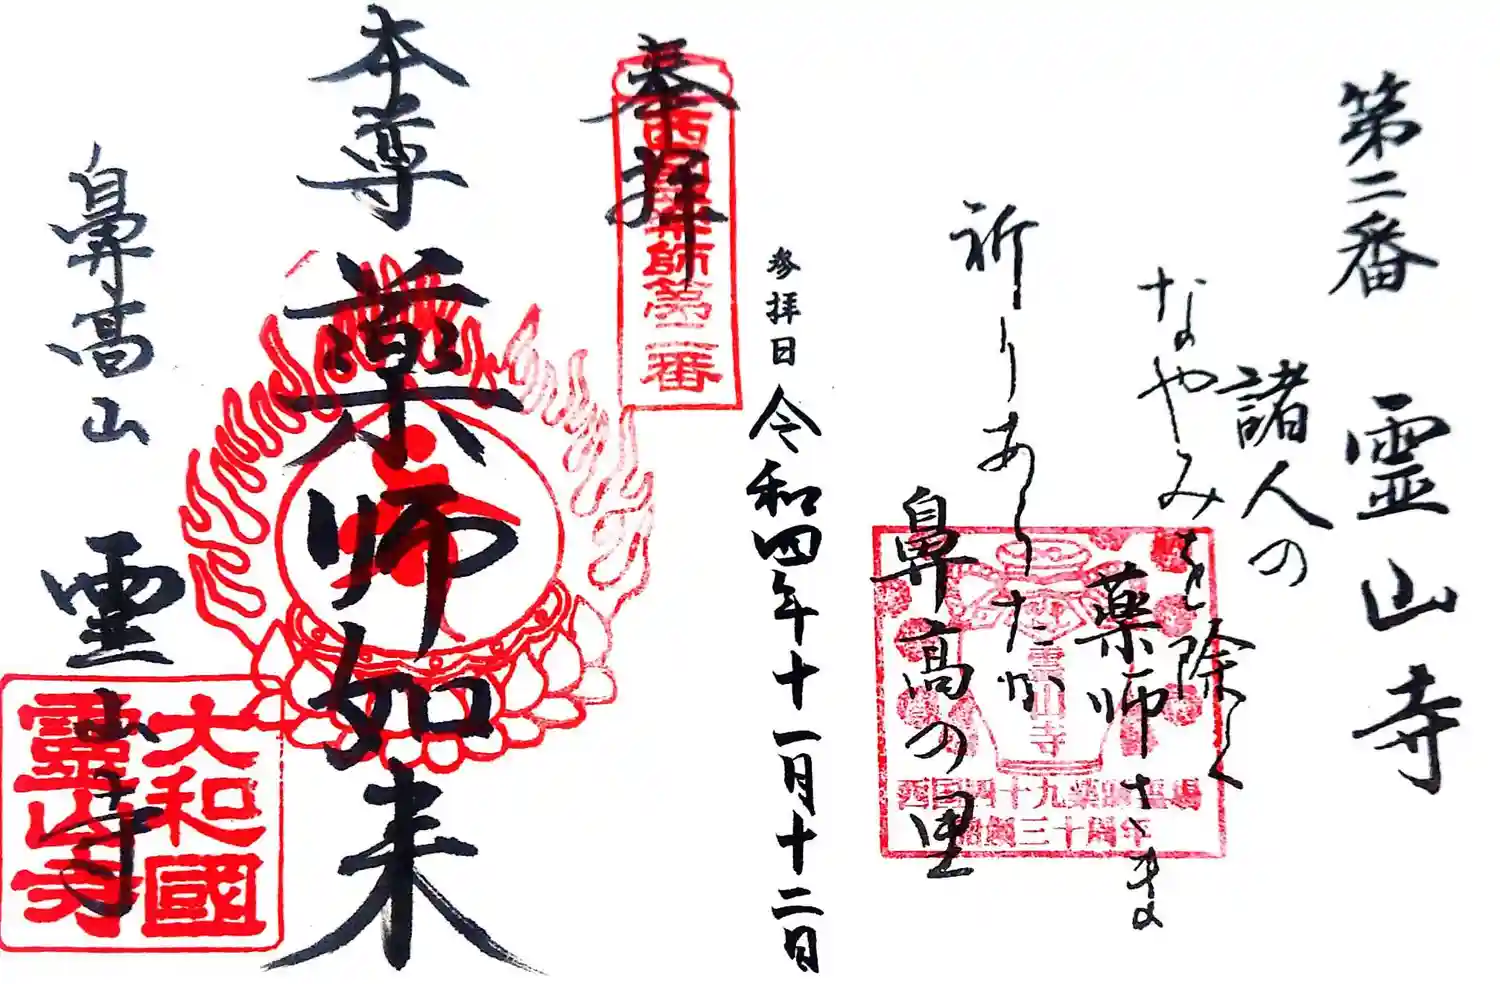 第二番 霊山寺
諸人の
なやみを除く
薬師さま
祈りあらたか
鼻高の里
霊山寺
西国四十九薬師霊場
開創三十周年
参拝日 令和四年十一月十二日
奉拝
西国薬師第二番
本尊 薬師如来
鼻高山 霊山寺
大和國
靈山寺